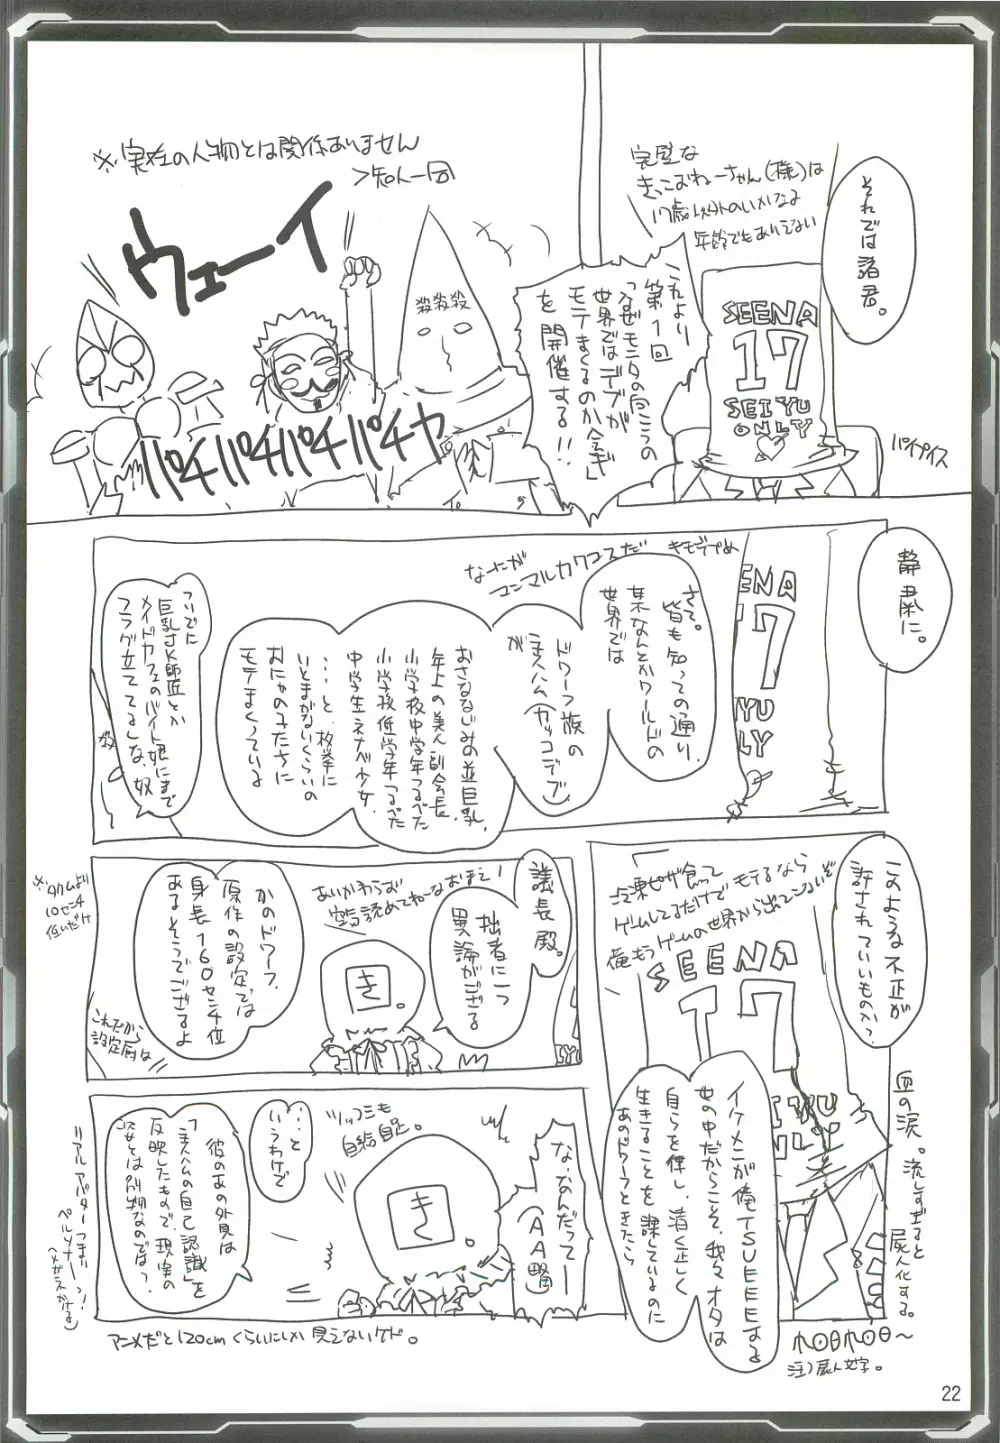 それでは諸君。
完璧な
きっこおねーちゃん(様)は
17歳以外のいかなる
年齢でもありえない
SEENA
17
SEIYU
ONLY
パイプイス
これより
第1回
「なぜモニタの向こうの
世界ではデブが
モテまくるのか会議」
を開催する!!
※実在の人物とは関係ありません
>知人一同
ウェーイ
殺殺殺
パチパチパチパチ
静粛に。
EENA
17
IYU
LY
さて。
皆も知っての通り、
某なんとかワールドの
世界では
キモデブめ
なーにが
マンマルカワユスだ
ドワーフ族の
主人公(カッコデブ)
が
おさななじみの並巨乳、
年上の美人副会長、
小学校中学年つるぺた
小学校低学年つるぺた
中学生ネナベ少女、
…と、枚挙に
いとまがないくらいの
おにゃの子たちに
モテまくっている
ついでに
巨乳JK師匠とか
メイドカフェのバイト娘にまで
フラグ立ててるしな、奴
殺
このような不正が
許されていいものか?
「冷凍ピザ食って
ゲームしてるだけでモテるなら
俺もうゲームの世界から出てこないぞ
SEENA
17
IYU
NL
イケメンが俺TSUEEEする
世の中だからこそ、我々オタは
自らを律し、清く正しく
生きることを課しているのに
あのドワーフときたら
血の涙。流しすぎると
屍人化する。
注)屍人文字。
議長殿。
拙者に一つ
異論がござる
あいかわらず
空気読めてねーなおまえ!
き。
かのドワーフ、
原作の設定では
身長160センチ位
あるそうでござるよ
※タクムより
10センチ
低いだけ
これだから
設定厨は
な、なんだってー
(AA略)
ツッコミも
自給自足。
き。
…と
いうわけで
彼のあの外見は
「主人公の自己認識」を
反映したもので、現実の
姿とは別物なのでは?
リアルアバターつまり
ペルソナーっ!
(メガネかける)
アニメだと120cmくらいにしか見えないケド。
22